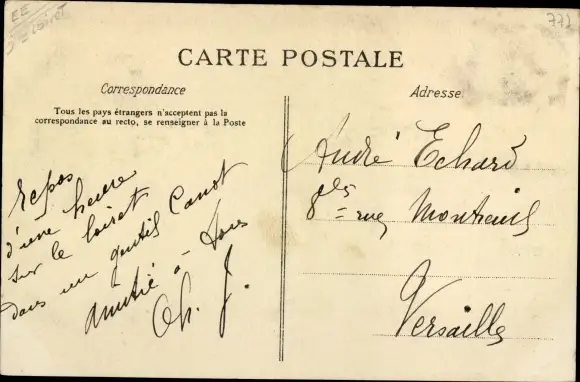 EE
Loiret
771
CARTE POSTALE
Correspondance
Adresse
Tous les pays étrangers n'acceptent pas la
correspondance au recto, se renseigner à la Poste
repos
d'une heure
sur le loiret
dans un gentil Canot
Amitié à tous
Ch. J.
André Echard
rue Montreuil
Versailles